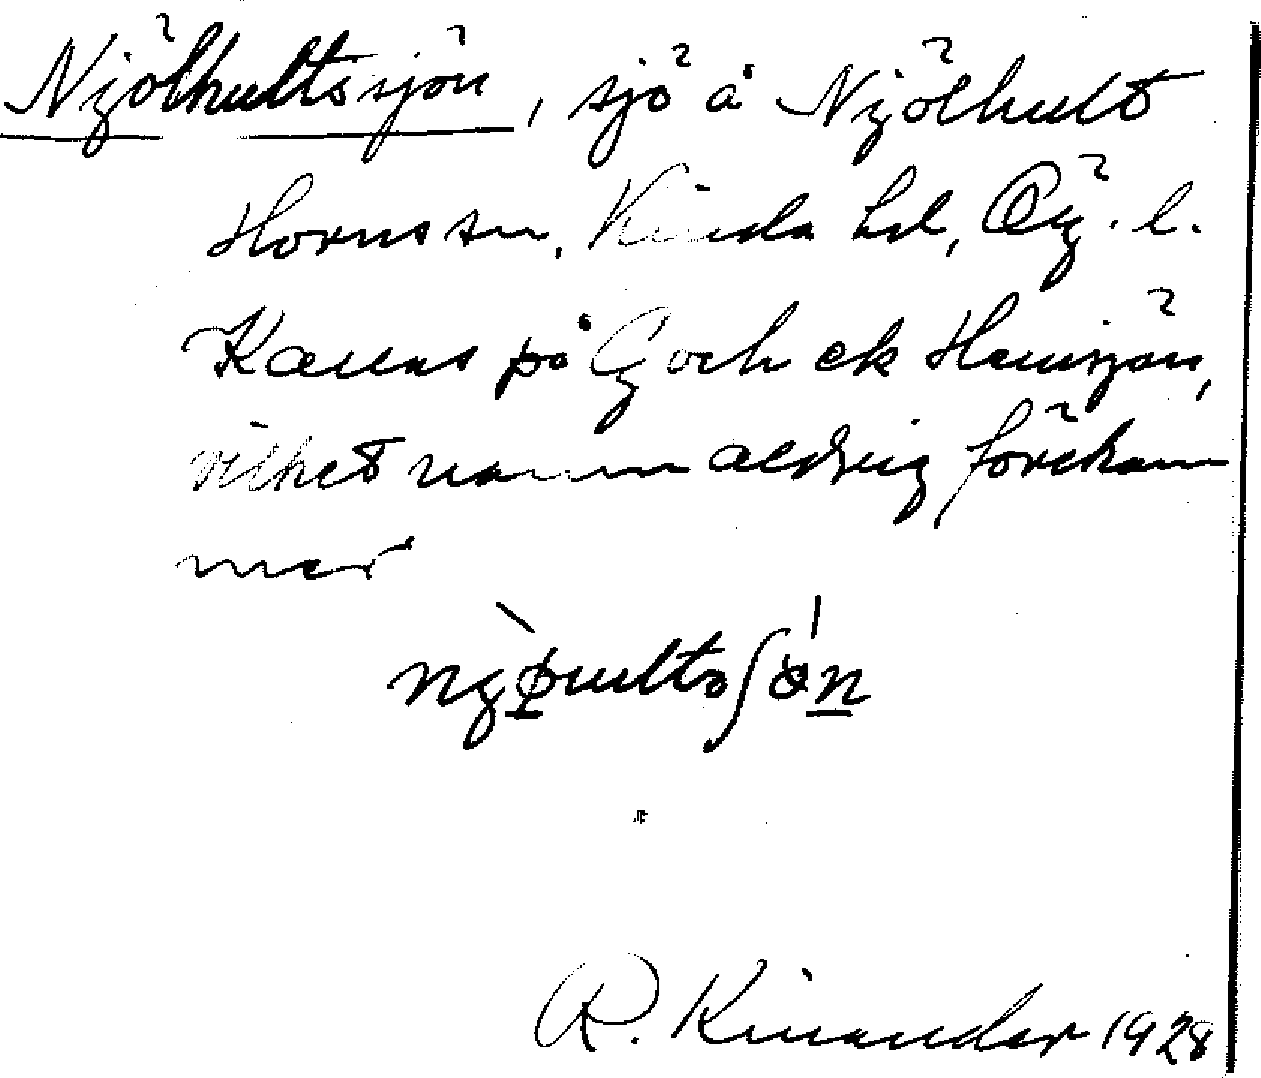 Njölhultssjön, sjö å Njölhult
Horns sn, Kinda hd, Ög. l.
Kallas på G och ek Hemsjön,
vilket namn aldrig förekom
mer
R. Kinander 1928